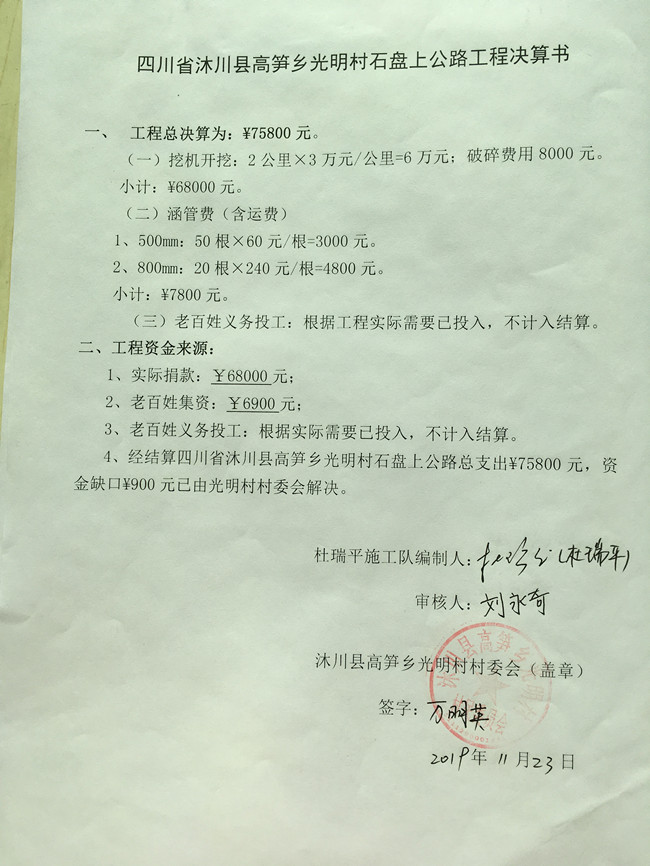 四川省沐川县高笋乡光明村石盘上公路工程决算书
一、 工程总决算为：¥75800 元。
（一）挖机开挖：2 公里×3 万元/公里=6 万元；破碎费用 8000 元。
小计：¥68000 元。
（二）涵管费（含运费）
1、500mm：50 根×60 元/根=3000 元。
2、800mm：20 根×240 元/根=4800 元。
小计：¥7800 元。
（三）老百姓义务投工：根据工程实际需要已投入，不计入结算。
二、工程资金来源：
1、实际捐款：￥68000 元；
2、老百姓集资：￥6900 元；
3、老百姓义务投工：根据实际需要已投入，不计入结算。
4、经结算四川省沐川县高笋乡光明村石盘上公路总支出¥75800 元，资
金缺口¥900 元已由光明村村委会解决。
杜瑞平施工队编制人：（杜瑞平）
审核人：刘永奇
沐川县高笋乡光明村村委会（盖章）
签字：万明英
2019年 11月23日
沐川县高笋乡